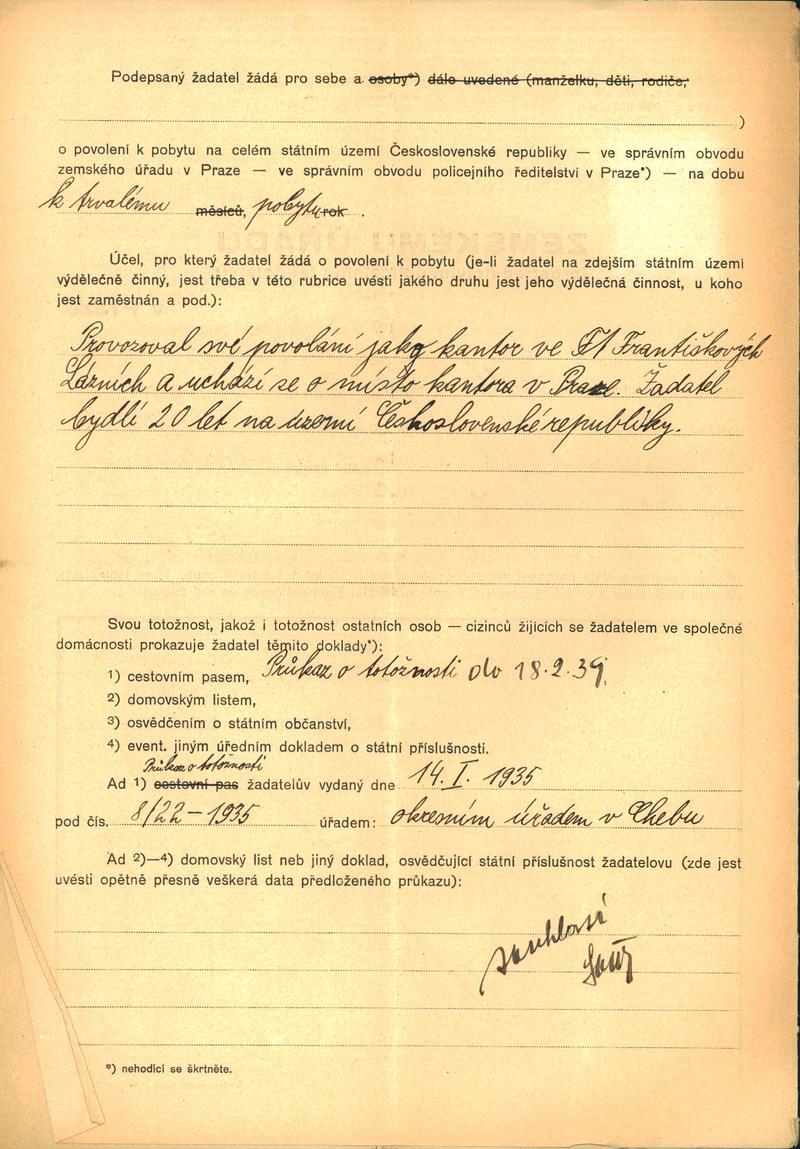 Podepsaný žadatel žádá pro sebe a osoby*) dále uvedené (manželku, děti, rodiče,
)
o povolení k pobytu na celém státním území Československé republiky — ve správním obvodu
zemského úřadu v Praze — ve správním obvodu policejního ředitelství v Praze*) — na dobu
k trvalému měsíců, pobytu rok .
Účel, pro který žadatel žádá o povolení k pobytu (je-li žadatel na zdejším státním území
výdělečně činný, jest třeba v této rubrice uvésti jakého druhu jest jeho výdělečná činnost, u koho
jest zaměstnán a pod.):
Provozoval své povolání jako kantor ve Františkových
Lázních a uchází se o místo kantora v Praze. Žadatel
bydlí 20 let na území Československé republiky.
Svou totožnost, jakož i totožnost ostatních osob — cizinců žijících se žadatelem ve společné
domácnosti prokazuje žadatel těmito doklady*):
1) cestovním pasem, Průkaz o totožnosti do 18.2.39.
2) domovským listem,
3) osvědčením o státním občanství,
4) event. jiným úředním dokladem o státní příslušnosti.
Průkaz o totožnosti
Ad 1) cestovní pas žadatelův vydaný dne 14. I. 1935
pod čís. 8/22 – 1935 úřadem: okresním úřadem v Chebu
Ad 2)—4) domovský list neb jiný doklad, osvědčující státní příslušnost žadatelovu (zde jest
uvésti opětně přesně veškerá data předloženého průkazu):
souhlasí
*) nehodící se škrtněte.